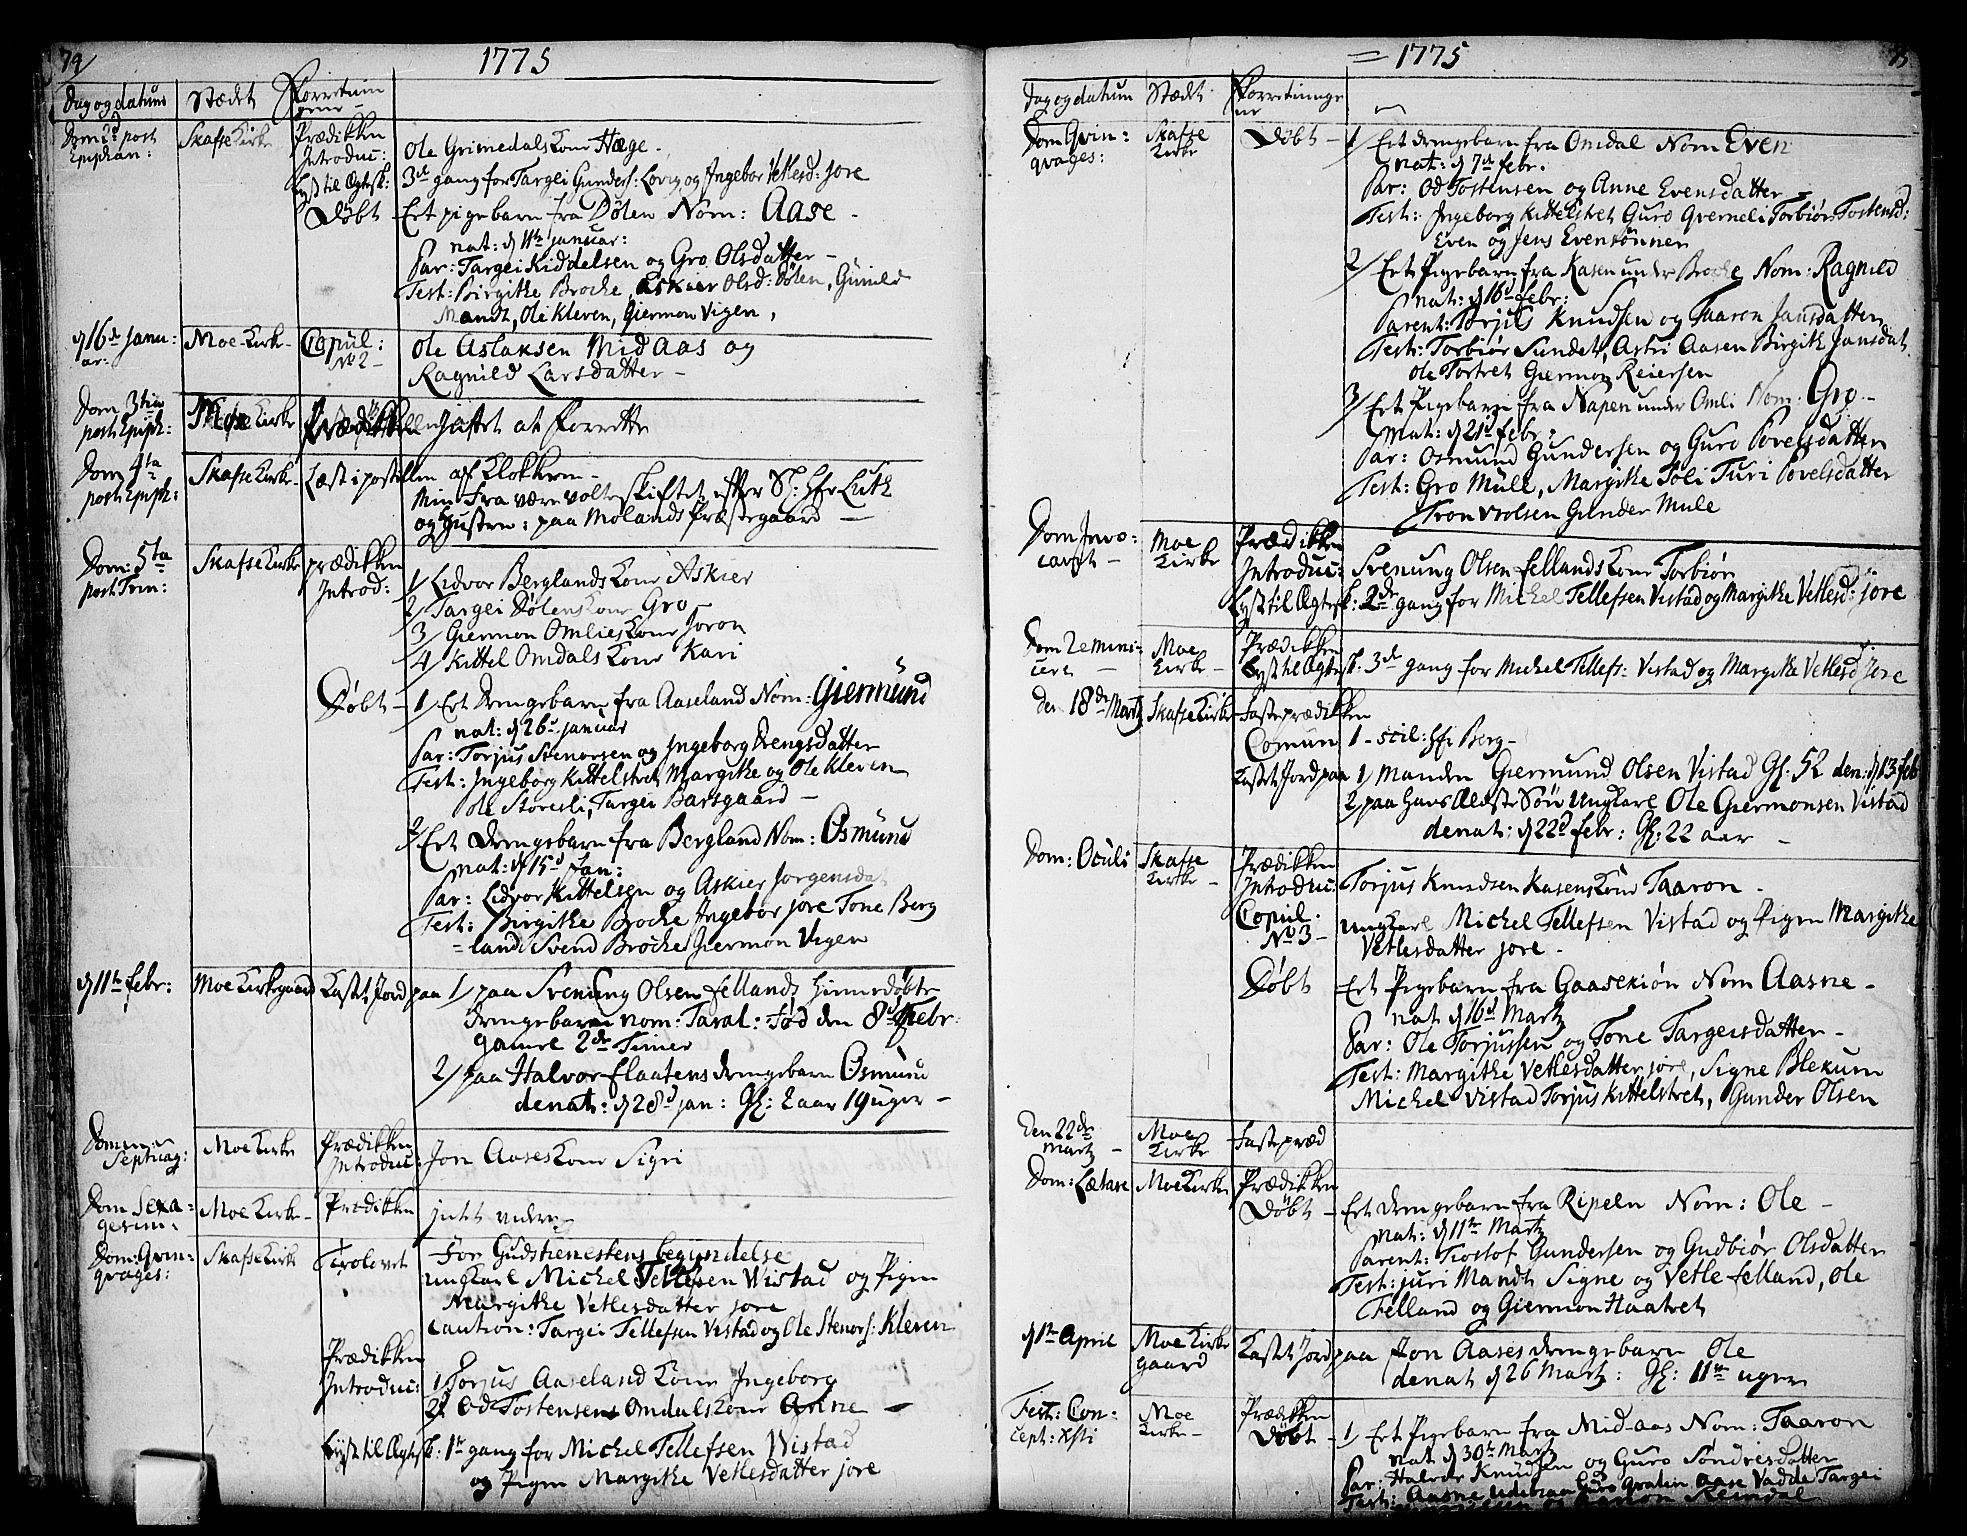 74
1775
Dag og datum Stædet Forretninger
Dom 2d post Epiphan: Skafse Kirke Prædikken
Introduc: Ole Grimedals Kone Hæge -
Lyst til Ægtesk: 3de gang for Targei Gunders: Lovig og Ingebor Vetlesd: jore
Døbt - Et pigebarn fra Dølen Nom: Aase -
nat: d 11te januar:
Par: Targei Kiddelsen og Gro Olsdatter -
Test: Birgithe Brocke, Askier Olsd: Dølen, Gunild
Mandt, Ole Kleven, Giermon Vigen,
d 16de Janu:ar: Moe Kirke - Copul: No 2 - Ole Aslaksen Mid Aas og
Ragnild Larsdatter -
Dom 3tia post Epiph: Moe Kirke Prædikken intet at Forrette
Dom 4ta post Epiph: Skafse Kirke - Læst i postillen af Klokken -
Min Fra være volte skiftet efter Sl: Hr Luth
og Hustru: paa Molands Præstegaard -
Dom: 5ta post Trin: Skafse Kirke prædikken
Introd: 1/ Lidvor Berglands Kone Askier
2/ Targei Dølens Kone Gro -
3/ Giermon Omlies Kone Joron
4/ Kittel Omdals Kone Kari
Døbt - 1/ Et drengebarn fra Aaseland Nom: Giermund
nat: d 26d januar
Par: Torjus Stenorsen og Ingeborg Drengsdatter
Test: Ingeborg Kittelstret Margithe og Ole Kleven
Ole Storesli, Targei Barsgaard -
2/ Et drengebarn fra Bergland Nom: Osmund
nat: d 15d Jan:
Par: Lidvor Kittelsen og Askier Jorgensdat
Test: Birgithe Brocke Ingebor jore Tone Berg
=land Svend Brocke Giermon Vigen
d 11te febr: Moe Kirkegaard Kastet Jord paa 1/ paa Svenung Olsen Fellands Hiemedøbte
drengebarn nom: Taral: Fød den 8d Febr:
gamel 2de Timer
2/ paa Halvor Flaatens drengebarn Osmund
denat: d 28d jan: Gl: 2 aar 19 uger -
Dom Septuag: Moe Kirke Prædikken
Introduc: Jon Aases Kone Sigri
Dom Sexagesim: Moe Kirke - Prædikken intet videre
Dom: Qvinqvages: Skafse Kirke Trolovet - For Gudstienestens begyndelse
ungkarl Michel Tellefsen Wistad og Pigen
Margithe Vetlesdatter jore
Caution: Targei Tellefsen Vistad og Ole Stenors: Kleven
Prædikken
Introduc: 1 Torjus Aaseland Kone Ingeborg
2/ Od Tostensens Omdals Kone Anne -
Lyst til Ægtesk: 1te gang for Michel Tellefsen Wistad
og Pigen Margithe Vetlesdatter jore
= 1775
75
Dag og datum Stædet Forretninger
Dom Qvinqvages: Skafse Kirke Døbt - 1/ Et drengebarn fra Omdal Nom Even
nat: d 7d febr.
Par: Od Tostensen og Anne Evensdatter
Test: Ingeborg Kittelstret Guro Qverneli Torbiør Tostensd:
Even og Jens Evensønner
2/ Et Pigebarn fra Kasen under Brocke Nom: Ragnild
nat: d 16d febr:
Parent: Torjus Knudsen og Taaron Jansdatter
Test: Torbiør Sundet, Astri Aasen Birgith Jansdat.
Ole Tortret Giermon Reiersen
3/ Et Pigebarn fra Napen under Omli Nom: Gro -
Nat: d 21d febr.
Par: Osmund Gundersen og Guro Povelsdatter
Test: Gro Mule, Margithe Toli Turi Povelsdatter
Tron Vrolsen Gunder Mule
Dom Invocavit - Moe Kirke Prædikken
Introduc: Svenung Olsen Fellands Kone Torbiør
Lyst til Ægtesk: 2de gang for Michel Tellefsen Vistad og Margithe Vetlesd: jore
Dom Reminiscere - Moe Kirke - Prædikken
Lyst til Ægtesk: 3de gang for Michel Tellefs: Vistad og Margithe Vetlesd jore
den 18de Martz Skafse Kirke - Fasteprædikken
Comun 1 - scil: Hr Berg -
Kastet Jord paa 1/ Manden Giermund Olsen Vistad Gl: 52 den: d 13 feb
2 paa Hans Ældste Søn Ungkarl Ole Giermonsen Vistad
denat: d 22d febr: Gl: 22 aar -
Dom: Oculi Skafse Kirke - Prædikken
Introduc: Torjus Knudsen Kasens Kone Taaron -
Copul: No 3 - ungkarl Michel Tellefsen Vistad og Pigen Margithe
Vetlesdatter jore -
Døbt Et Pigebarn fra Gaasekiøn Nom Aasne -
nat d 16d Martz
Par: Ole Torjussen og Tone Targeisdatter -
Test: Margithe Vetlesdatter jore, Signe Blekum
Michel Vistad Torjus Kittelstret, Gunder Olsen
Den 22de Martz - Moe Kirke Fastepræd
Dom: Lætare Moe Kirke Prædikken
Døbt - Et drengebarn fra Ripeln Nom: Ole -
nat: d 11te Martz
Parent: Tiostof Gundersen og Gudbiør Olsdatter
Test: juri Mandt Signe og Vetle Felland, Ole
Felland og Giermon Haatret
d 1te April Moe Kirkegaard Kastet Jord paa Jon Aases drengebarn Ole
denat d 26 Martz: Gl: 11te uger
Fest: Concept: Xsti Moe Kirke - Prædikken
Døbt - 1/ Et Pigebarn fra Mid-aas Nom: Taaron
nat d 30te Martz
Par: Halvor Knudsen og Guro Sondresdatter
Test: Aasne Guro Aase Vadde Targei